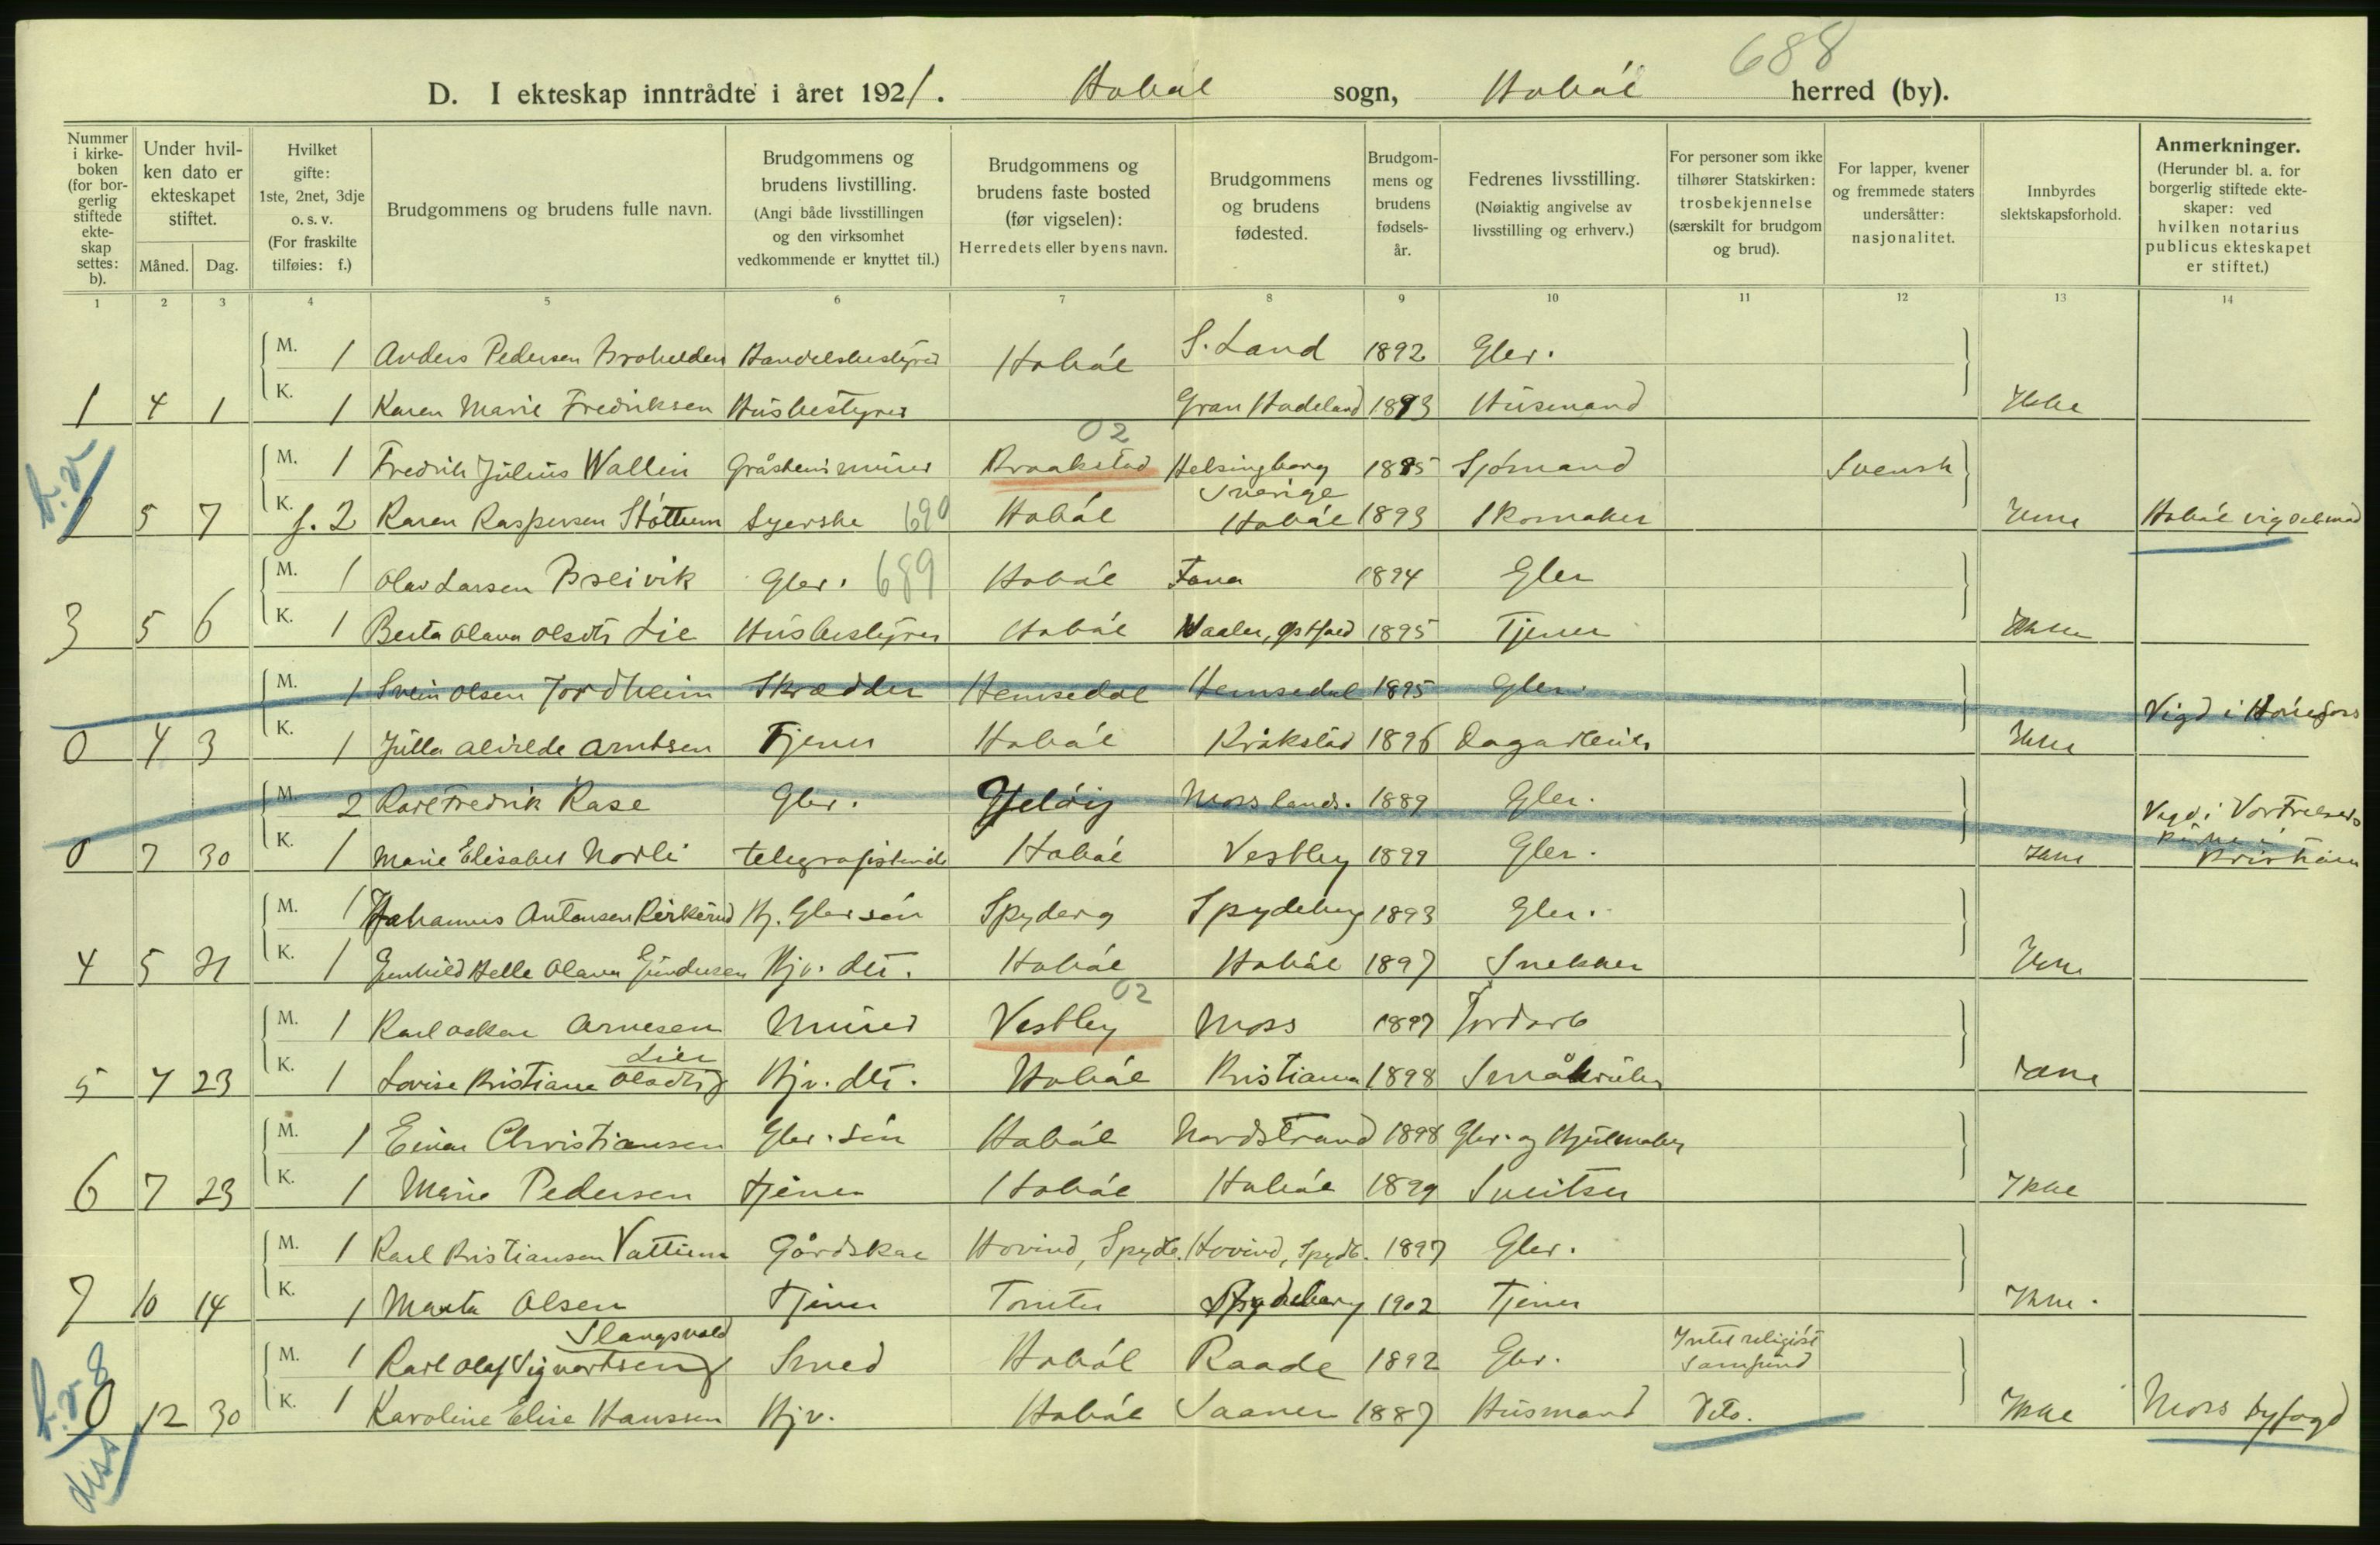 688
D. I ekteskap inntrådte i året 1921. Hobøl sogn, Hobøl herred (by).
Nummer i kirke-boken (for bor-gerlig stiftede ekte-skap settes: b).
Under hvil-ken dato er ekteskapet stiftet.
Måned. Dag.
Hvilket gifte: 1ste, 2net, 3dje o. s. v. (For fraskilte tilføies: f.)
Brudgommens og brudens fulle navn.
Brudgommens og brudens livstilling. (Angi både livsstillingen og den virksomhet vedkommende er knyttet til.)
Brudgommens og brudens faste bosted (før vigselen): Herredets eller byens navn.
Brudgommens og brudens fødested.
Brudgom-mens og brudens fødsels-år.
Fedrenes livsstilling. (Nøiaktig angivelse av livsstilling og erhverv.)
For personer som ikke tilhører Statskirken: trosbekjennelse (særskilt for brudgom og brud).
For lapper, kvener og fremmede staters undersåtter: nasjonalitet.
Innbyrdes slektskapsforhold.
Anmerkninger. (Herunder bl. a. for borgerlig stiftede ekte-skaper: ved hvilken notarius publicus ekteskapet er stiftet.)
1 2 3 4 5 6 7 8 9 10 11 12 13 14
M. 1 Anders Pedersen Handelsbestyrer Hobøl S. Land 1892 Gbr.
1 4 1 K. 1 Karen Marie Fredriksen Husbestyrer Gran Hadeland 1893 Husmand Ikke
02
b.v.
M. 1 Fredrik Julius Wallin Gråstensmurer Kraakstad Helsingborg Sverige 1885 Sjømand Svensk
1 5 7 K. f. 2 Karen Kaspersen Støttum Syerske 690 Hobøl Hobøl 1893 Skomaker Ikke Hobøl vigselsmand
M. 1 Olav Larsen Breivik Gbr. 689 Hobøl Fana 1894 Gbr
3 5 6 K. 1 Berta Olava Olsdtr Lie Husbestyrer Hobøl Waaler, Østfold 1895 Tjener Ikke
M. 1 Svein Olsen Jordheim Skrædder Hemsedal Hemsedal 1895 Gbr. Vigd i Hønefoss
0 4 3 K. 1 Julla Alvilde Arntsen Tjener Hobøl Kråkstad 1896 Dagarbeider Ikke
M. 2 Karl Fredrik Kase Gbr. Moss lands. 1889 Gbr. Vigd i Vor Frelsers kirke i Kristiania
0 7 30 K. 1 Marie Elisabet Norli telegrafistinde Hobøl Vestby 1899 Gbr. Ikke
M. 1 Johannes Antonsen Kirkerud Hj. Gbr søn Spyderg Spydeberg 1893 Gbr.
4 5 21 K. 1 Gunhild Helle Olava Gundersen Hjv. dtr. Hobøl Hobøl 1897 Snekker Ikke
02
M. 1 Karl Oskar Arnesen Murer Vestby Moss 1897 Jordarb
Lier
5 7 23 K. 1 Lovise Kristiane Olsdtr Hjv. dtr. Hobøl Kristiania 1898 Småbruker Ikke
M. 1 Einar Christiansen Gbr. søn Hobøl Nordstrand 1898 Gbr. og Hjulmaker
6 7 23 K. 1 Marie Pedersen tjener Hobøl Hobøl 1899 Sveitser Ikke
M. 1 Karl Kristiansen Vattum Gårdskar Hovind, Spydb. Hovind, Spydb. 1897 Gbr.
7 10 14 K. 1 Marta Olsen Tjener Tomter Spydeberg 1902 Tjener Ikke.
Slangsvold
M. 1 Karl Olaf Sigvartsen Smed Hobøl Raade 1892 Gbr. Intet religiøst samfund
b.v. 8
0 12 30 K. 1 Karoline Elise Hanssen Hjv. Hobøl Saaner 1887 Husmand Dito. Ikke Moss byfogd
diss